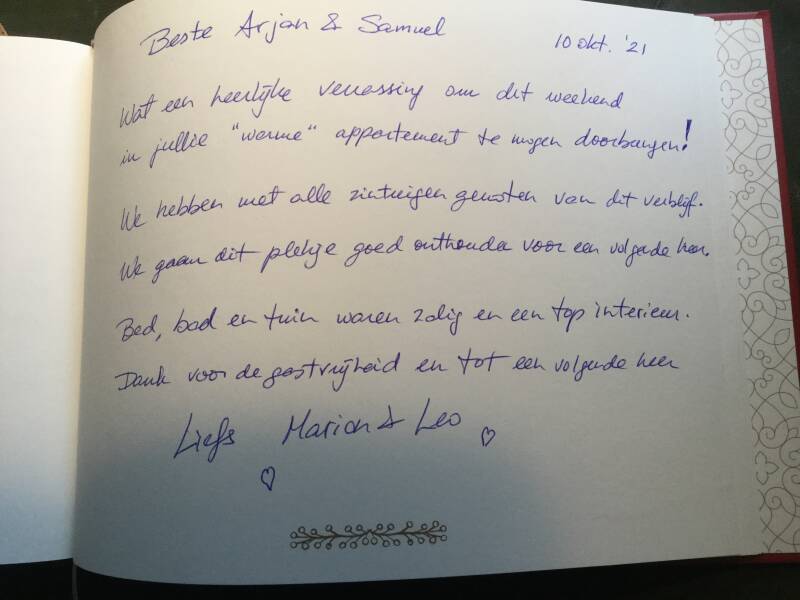 Beste Arjan & Samuel
10 okt. '21
Wat een heerlijke verrassing om dit weekend
in jullie "warme" appartement te mogen doorbrengen!
We hebben met alle zintuigen genoten van dit verblijf.
We gaan dit plekje goed onthouden voor een volgende keer.
Bed, bad en tuin waren zalig en een top interieur.
Dank voor de gastvrijheid en tot een volgende keer
Liefs Marion & Leo